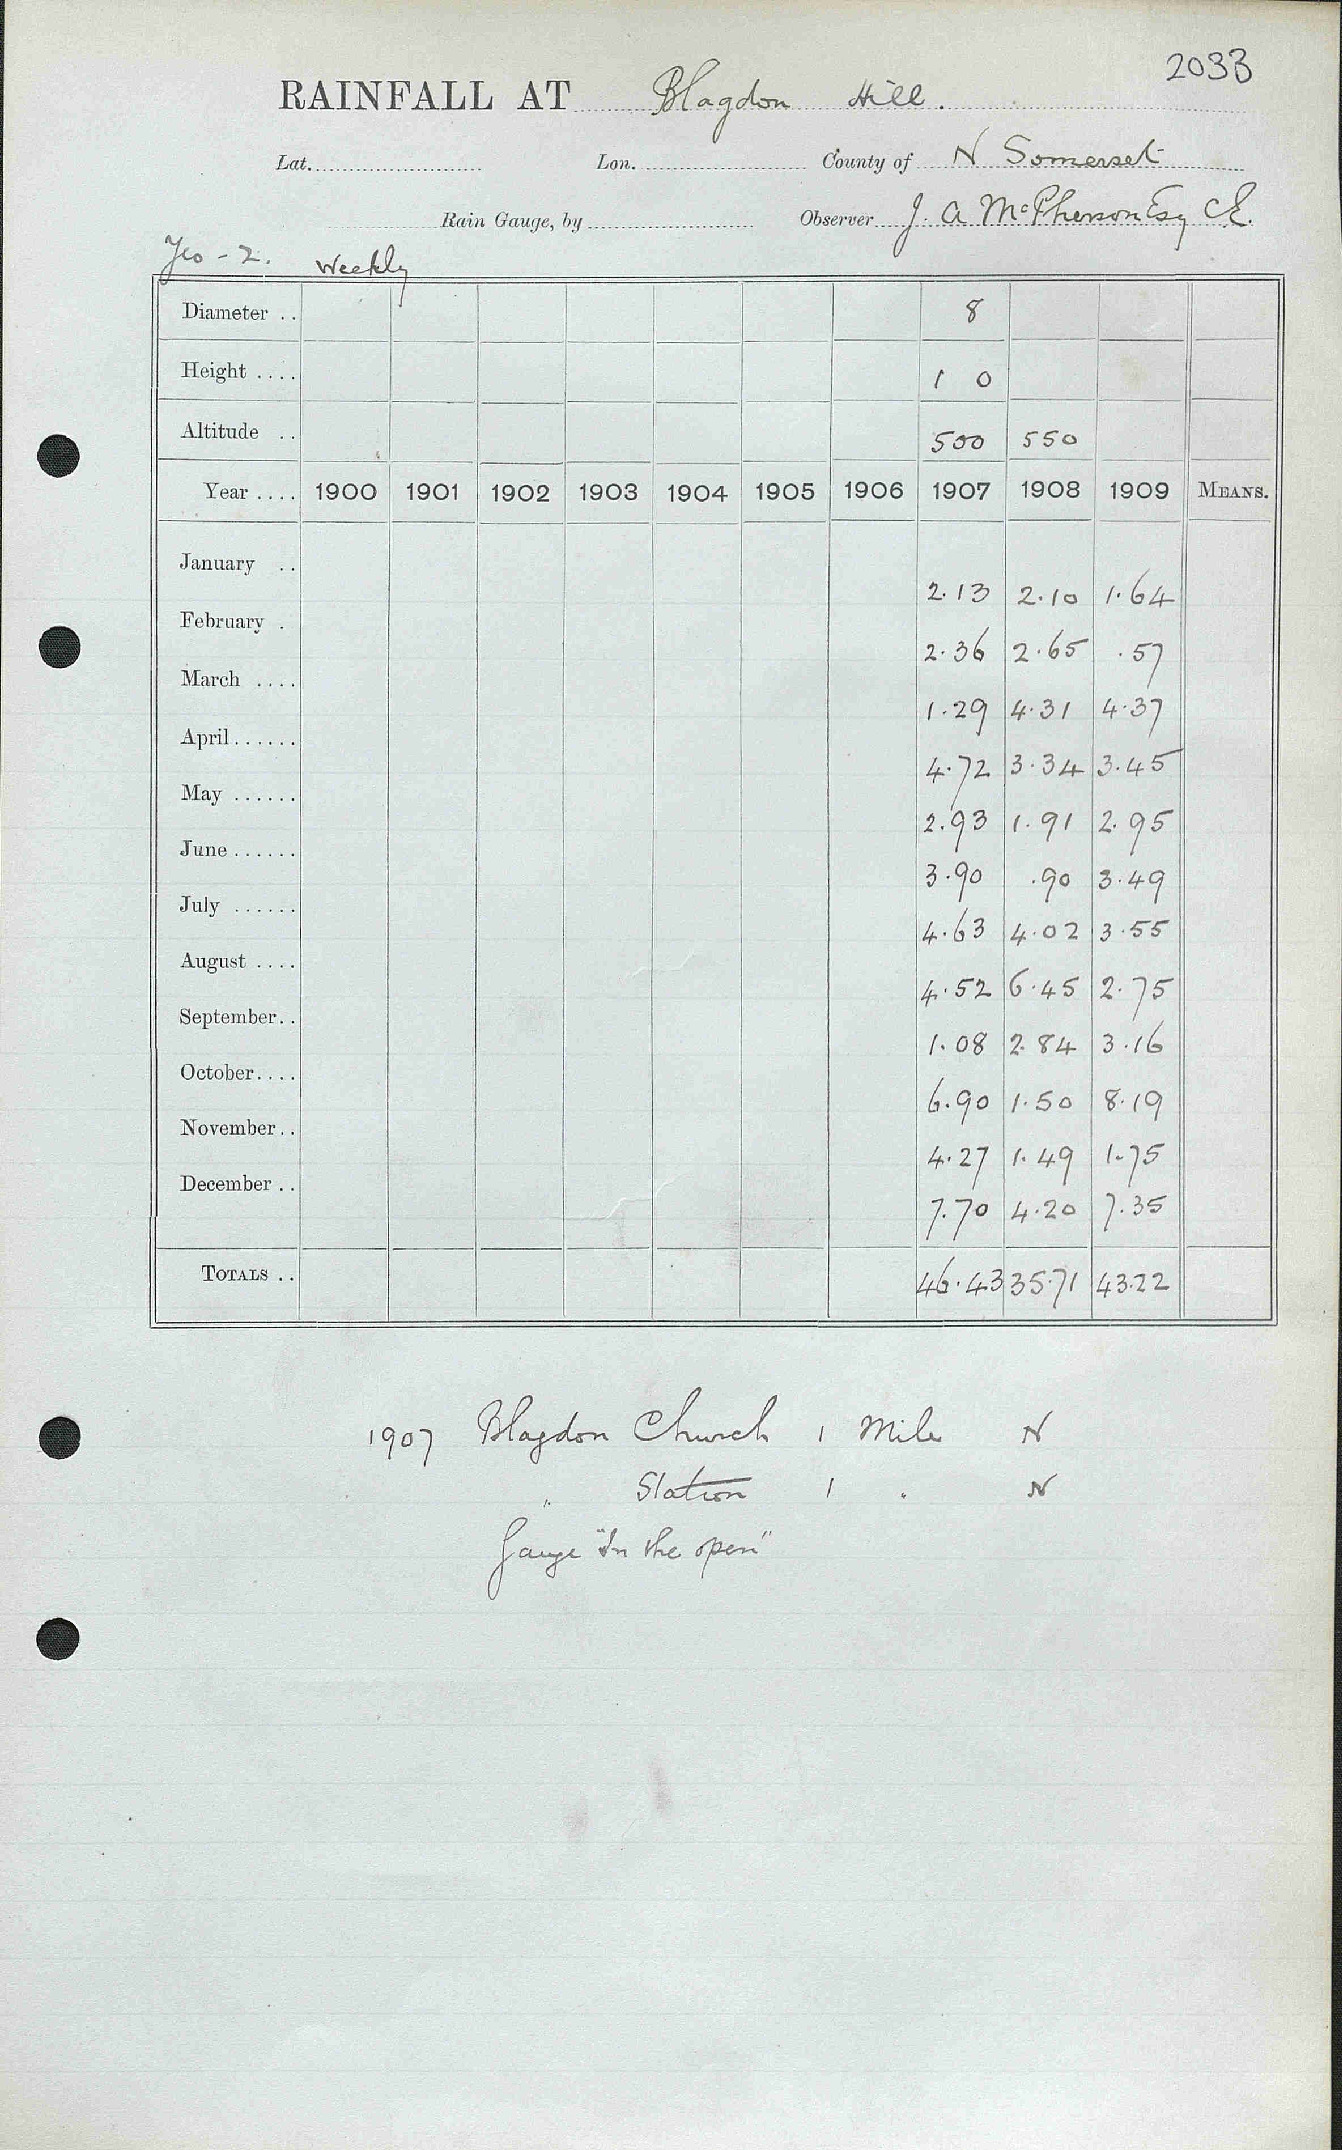 2033
RAINFALL AT Blagdon Hill.
Lat. Lon. County of N Somerset
Rain Gauge, by Observer J. A McPherson Esq CE.
Yeo - 2. Weekly
Diameter .. 8
Height .... 1 0
Altitude .. 500 550
Year .... 1900 1901 1902 1903 1904 1905 1906 1907 1908 1909 MEANS.
January .. 2.13 2.10 1.64
February . 2.36 2.65 .57
March .... 1.29 4.31 4.37
April...... 4.72 3.34 3.45
May ...... 2.93 1.91 2.95
June ...... 3.90 .90 3.49
July ...... 4.63 4.02 3.55
August .... 4.52 6.45 2.75
September.. 1.08 2.84 3.16
October.... 6.90 1.50 8.19
November.. 4.27 1.49 1.75
December .. 7.70 4.20 7.35
TOTALS .. 46.43 35.71 43.22
1907 Blagdon Church 1 Mile N
" Station 1 " N
Gauge "In the open"